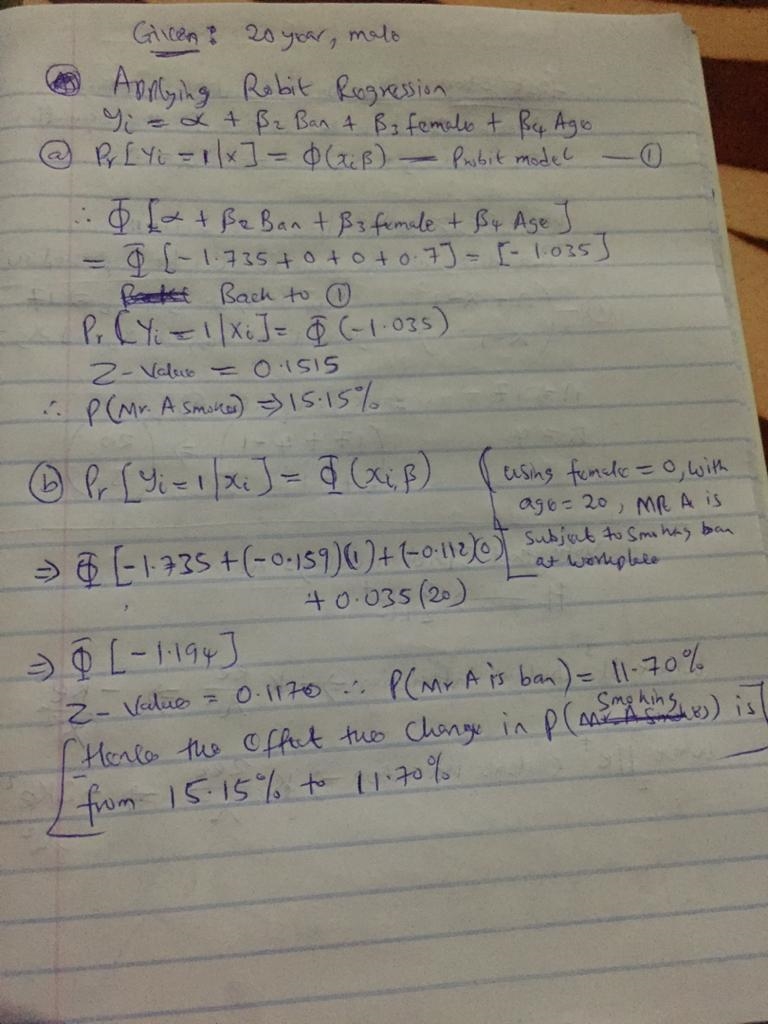 Given: 20 year, male
Applying Probit Regression
Yi = α + β2 Ban + β3 female + β4 Age
(a) Pr[Yi = 1|x] = Φ(xiβ) — Probit model — (1)
∴ Φ [α + β2 Ban + β3 female + β4 Age]
= Φ [-1.735 + 0 + 0 + 0.7] = [-1.035]
Back to (1)
Pr [Yi = 1|Xi] = Φ (-1.035)
Z-Value = 0.1515
∴ P(Mr. A smokes) ⇒ 15.15%
(b) Pr [Yi = 1|xi] = Φ (xi, β)
using female = 0, with
age = 20, MR A is
subject to smoking ban
at workplace
⇒ Φ [-1.735 + (-0.159)(1) + (-0.112)(0)
+ 0.035(20)
⇒ Φ [-1.194]
Z-Value = 0.1170 ∴ P(Mr A is ban) = 11.70%
Hence the effect the Change in P(Smoking) is
from 15.15% to 11.70%